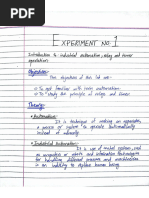 EXPERIMENT NO. 1
Introduction to industrial automation, relay and timer
operation:
Objective:
The objective of this lab are:
To get familiar with auto-
To study the principle of relays and timer.
Theory:
Automation:
It is a technique of making an
a process or system to operate automatically
instead of manually.
Industrial Automation:
It is use of control system, such
as computers or robots and information technologies
for handling different process and machineries
in an industry to replace human being.